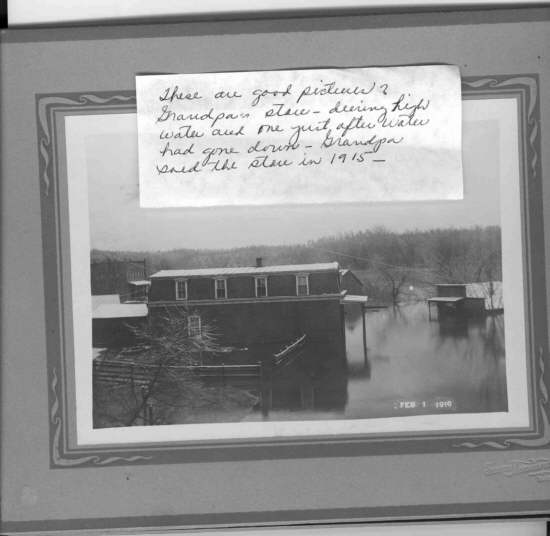 These are good pictures of
Grandpa's store - during high
water and one just after water
had gone down - Grandpa
sold the store in 1915 -
FEB 1 1916